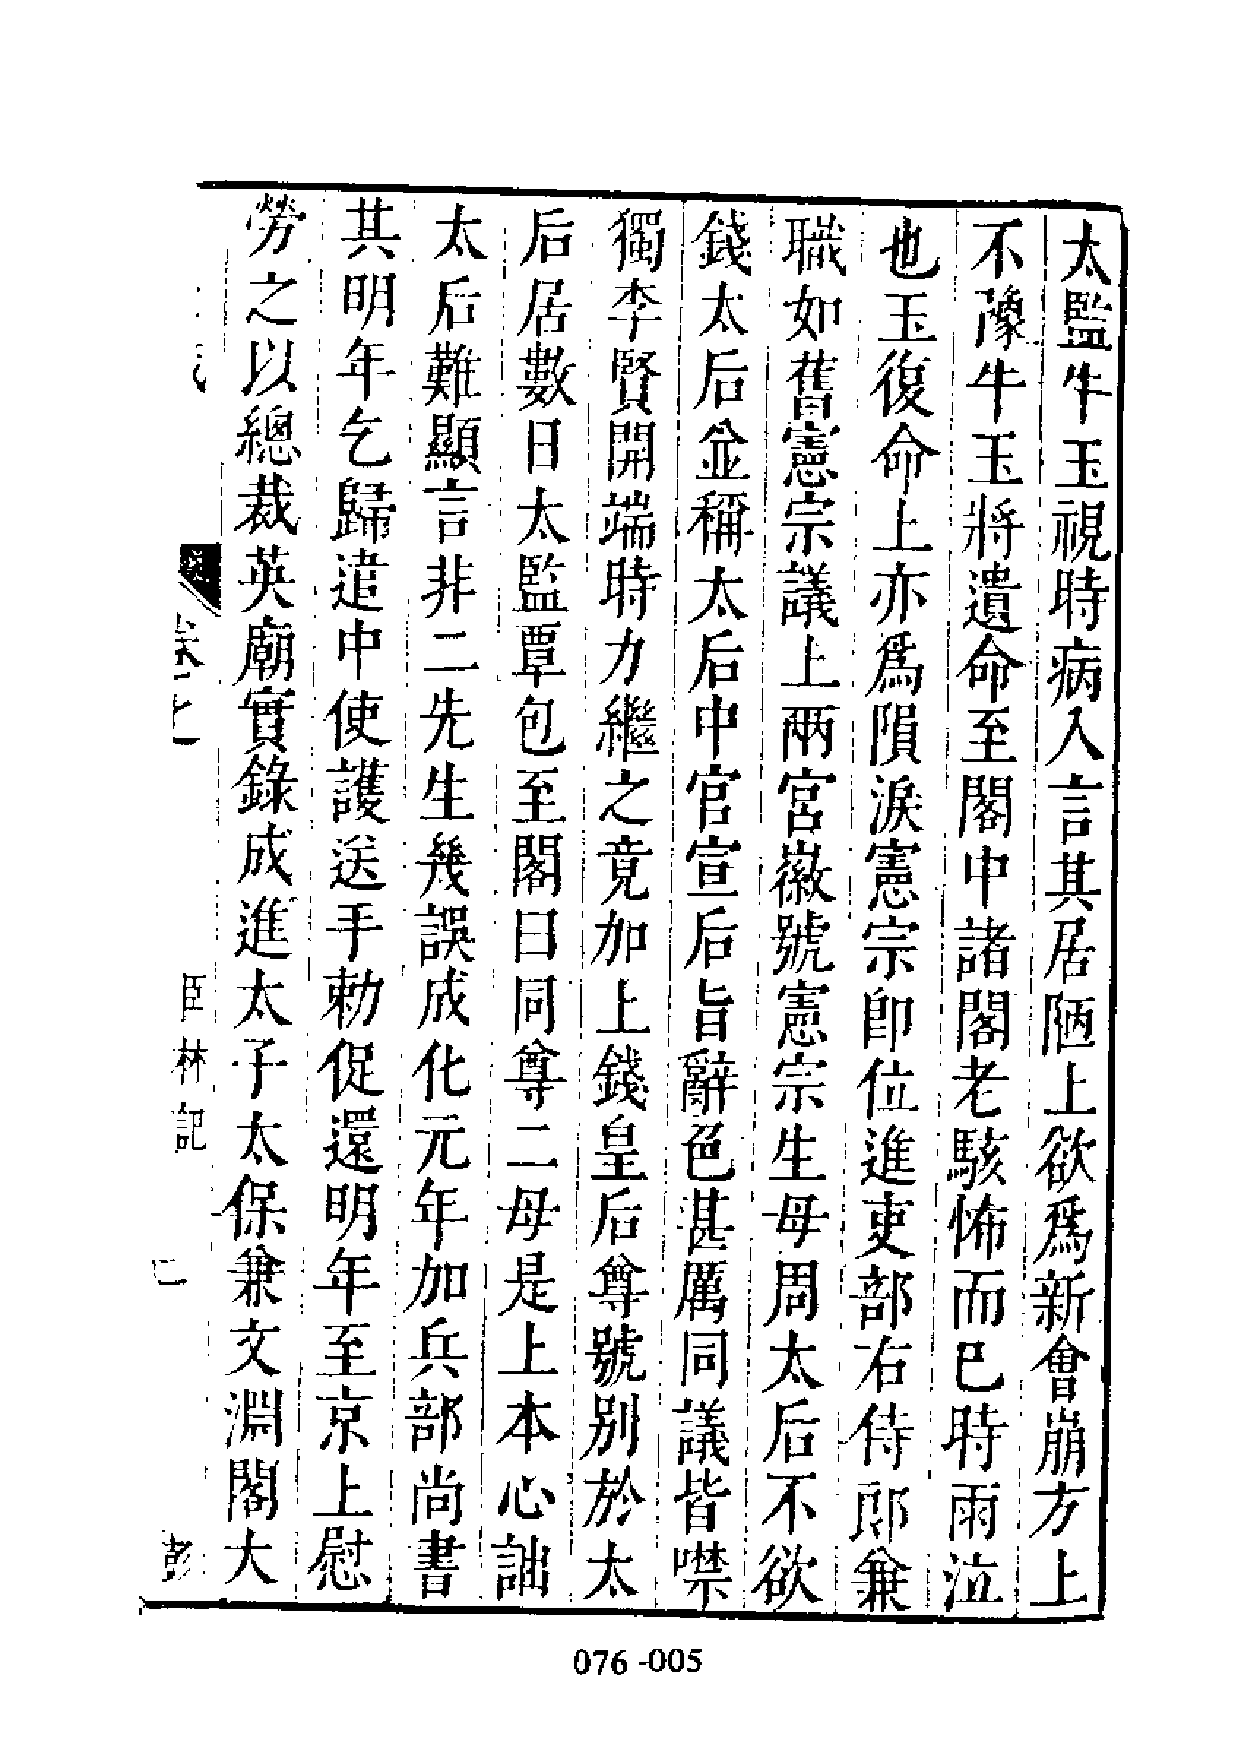 太監牛玉視時病入言其居陋上欲爲新會崩方上
不豫牛玉將遺命至閣中諸閣老駭怖而已時雨泣
也玉復命上亦爲隕淚憲宗卽位進吏部右侍郎兼
職如舊憲宗議上兩宮徽號憲宗生母周太后不欲
錢太后並稱太后中官宣后旨辭色甚厲同議皆噤
獨李賢開端時力繼之竟加上錢皇后尊號別於太
后居數日太監覃包至閣曰同尊二母是上本心詘
太后難顯言非二先生幾誤成化元年加兵部尚書
其明年乞歸遣中使護送手勅促還明年至京上慰
勞之以總裁英廟實錄成進太子太保兼文淵閣大
076-005